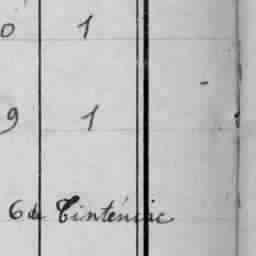 0 1
9 1
6 de Tinténiac